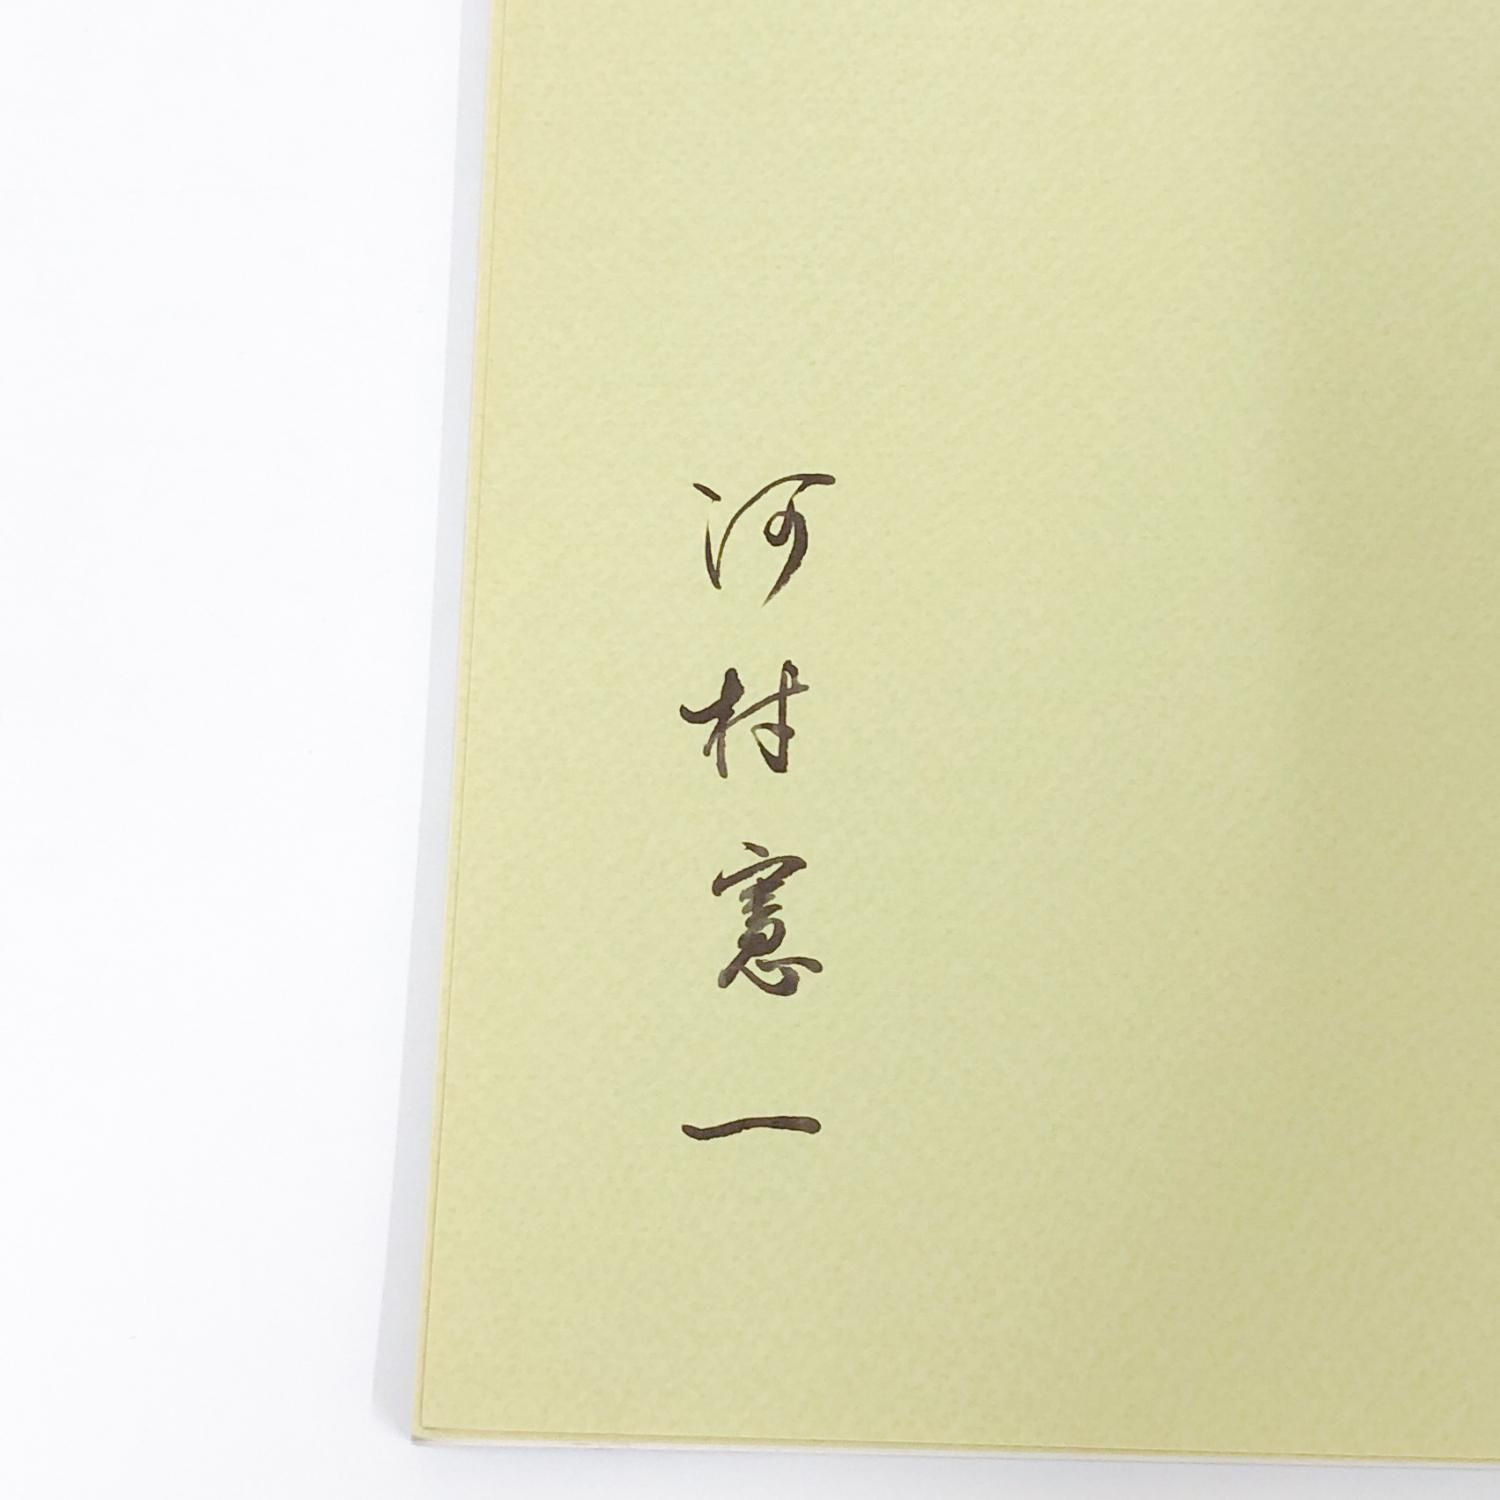 河村憲一